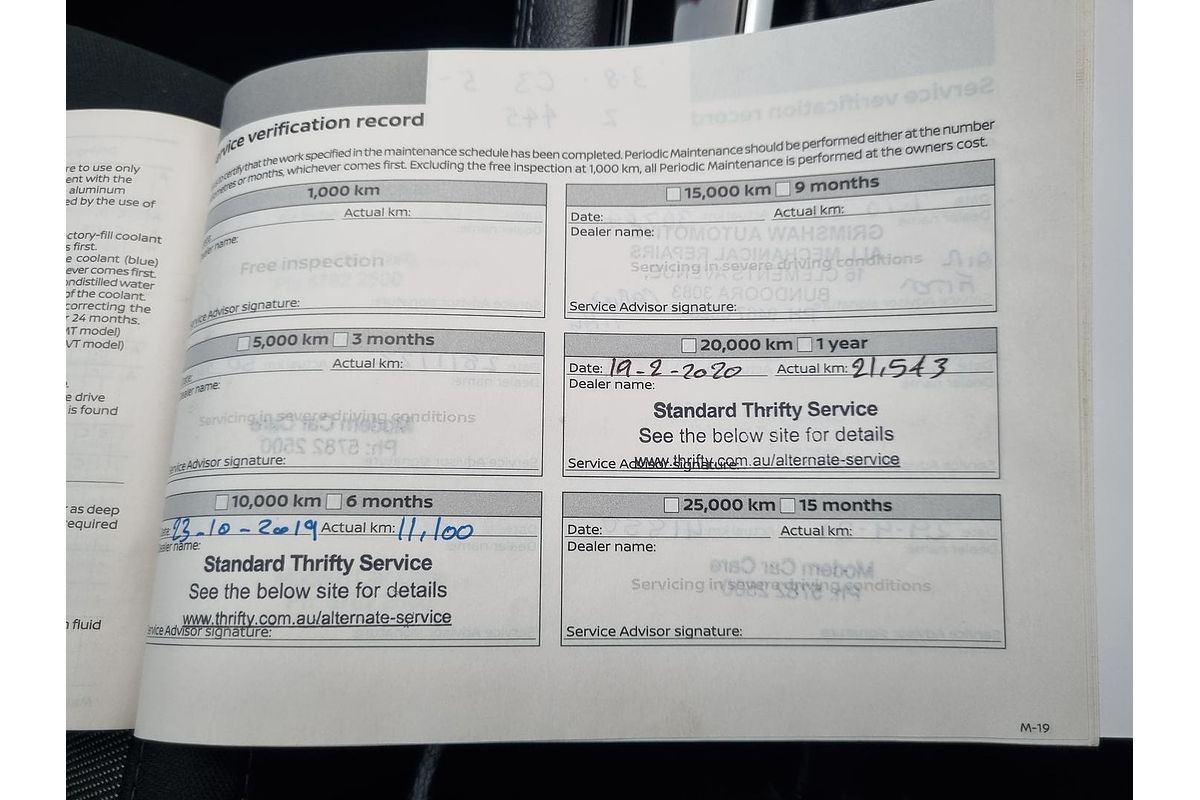 re to use only
ent with the
aluminum
ed by the use of
ctory-fill coolant
s first.
e coolant (blue)
ever comes first.
ndistilled water
of the coolant.
correcting the
24 months.
MT model)
VT model)
e drive
is found
as deep
equired
fluid
vice verification record
to certify that the work specified in the maintenance schedule has been completed. Periodic Maintenance should be performed either at the number
metres or months, whichever comes first. Excluding the free inspection at 1,000 km, all Periodic Maintenance is performed at the owners cost.
1,000 km
Actual km:
Dealer name:
Free inspection
Service Advisor signature:
5,000 km 3 months
Date: Actual km:
Dealer name:
Servicing in severe driving conditions
Service Advisor signature:
10,000 km 6 months
Date: 23-10-2019 Actual km: 11,100
Dealer name:
Standard Thrifty Service
See the below site for details
www.thrifty.com.au/alternate-service
Service Advisor signature:
15,000 km 9 months
Date: Actual km:
Dealer name:
Servicing in severe driving conditions
Service Advisor signature:
20,000 km 1 year
Date: 19-2-2020 Actual km: 21,543
Dealer name:
Standard Thrifty Service
See the below site for details
www.thrifty.com.au/alternate-service
Service Advisor signature:
25,000 km 15 months
Date: Actual km:
Dealer name:
Servicing in severe driving conditions
Service Advisor signature:
M-19